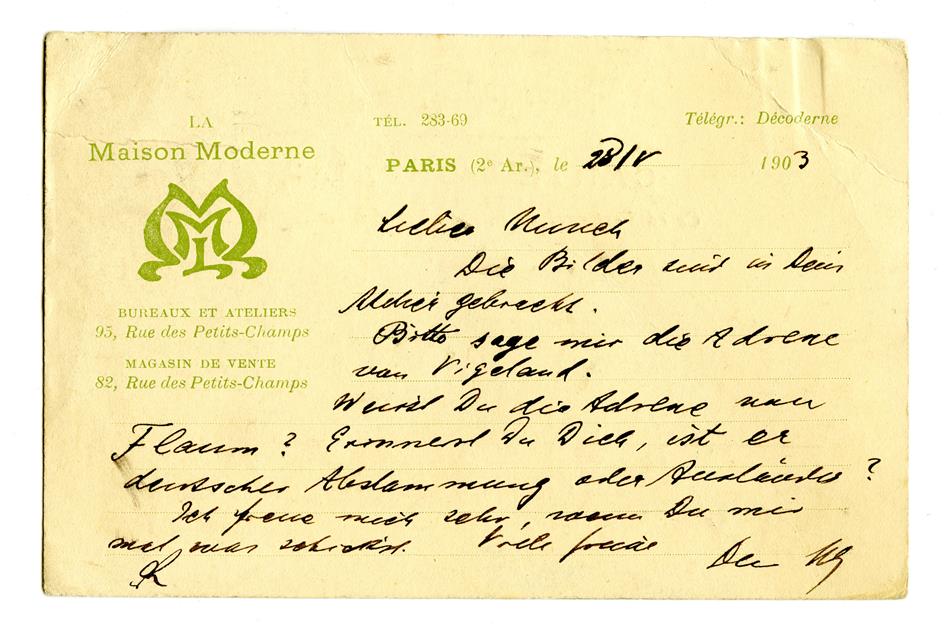 LA
Maison Moderne
TÉL. 283-69
Télégr.: Décoderne
PARIS (2e Ar.), le 28/V 1903
MML
BUREAUX ET ATELIERS
95, Rue des Petits-Champs
MAGASIN DE VENTE
82, Rue des Petits-Champs
Lieber Munch
Die Bilder sind in Dein
Atelier gebracht.
Bitte sage mir die Adresse
von Vigeland.
Weisst Du die Adresse von
Flaum? Erinnerst Du Dich, ist er
deutscher Abstammung oder Ausländer?
Ich freue mich sehr, wenn Du mir
mal was schickst. Viele
Dein